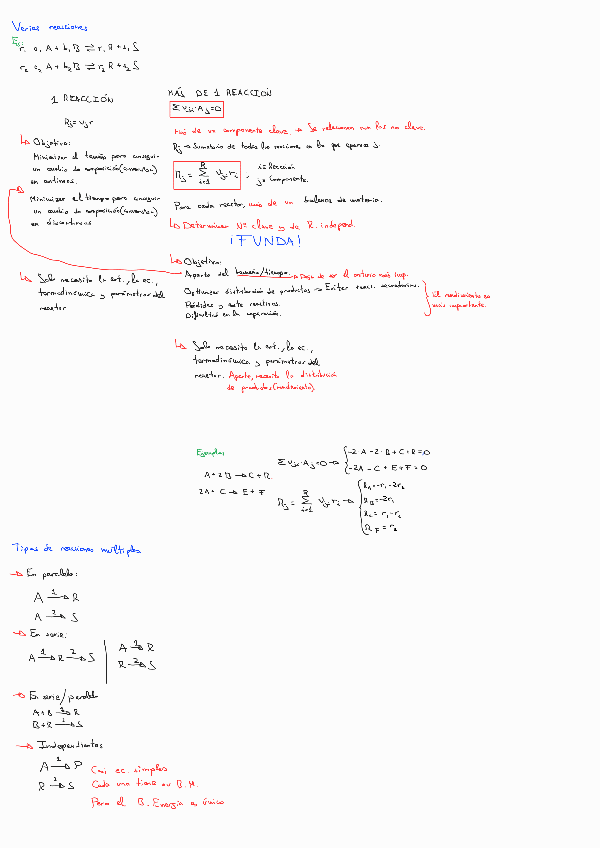 Varias reacciones
Ej:
r₁ a₁ A + b₁ B ⇄ r₁ R + s₁ S
r₂ a₂ A + b₂ B ⇄ r₂ R + s₂ S
1 REACCIÓN
Rj = νj r
↳ Objetivo:
Minimizar el tamaño para conseguir
un cambio de composición (conversión)
en continuos.
Minimizar el tiempo para conseguir
un cambio de composición (conversión)
en discontinuos
↳ Solo necesito la est., la ec.,
termodinámica y parámetros del
reactor
MÁS DE 1 REACCIÓN
Σ νji · Aj = 0
Más de un componente clave → Se relacionan con los no clave.
Rj → Sumatorio de todas las reacciones en la que aparece j.
Rj = Σ νji ri
R
i=1
i = Reacción
j = Componente.
Para cada reactor, más de un balance de materia.
↳ Determinar Nº clave y de R. independ.
¡TUNDA!
↳ Objetivo:
Aparte del tamaño/tiempo → Deja de ser el criterio más imp.
Optimizar distribución de productos → Evitar reacc. secundarias.
Pérdidas y más reactivos.
Dificultad en la separación.
El rendimiento es
más importante.
↳ Solo necesito la est., la ec.,
termodinámica y parámetros del
reactor. Aparte, necesito la distribución
de productos (rendimiento)
Ejemplo:
A + 2B → C + R
2A + C → E + F
Σ νji · Aj = 0 →
-2A - C + E + F = 0
Rj = Σ νji ri →
R
i=1
RA = -r₁ - 2r₂
RB = -2r₁
Rc = r₁ - r₂
RF = r₂
Tipos de reacciones múltiples
→ En paralelo:
A →¹ R
A →² S
→ En serie:
A →¹ R →² S
A →¹ R
R →² S
→ En serie/paralelo
A + B →¹ R
B + R →² S
→ Independientes
A →¹ P
R →² S
Casi ec. simples
Cada una tiene su B.M.
Pero el B. Energía es único